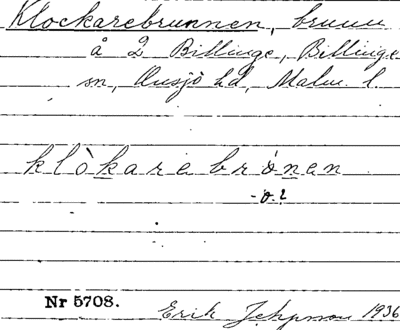 Klockarebrunnen, brunn
å 2 Billinge, Billinge
sn, Onsjö hd, Malm. l.
klòkarebrònen
-ò.?
Nr 5708.
Erik 1936